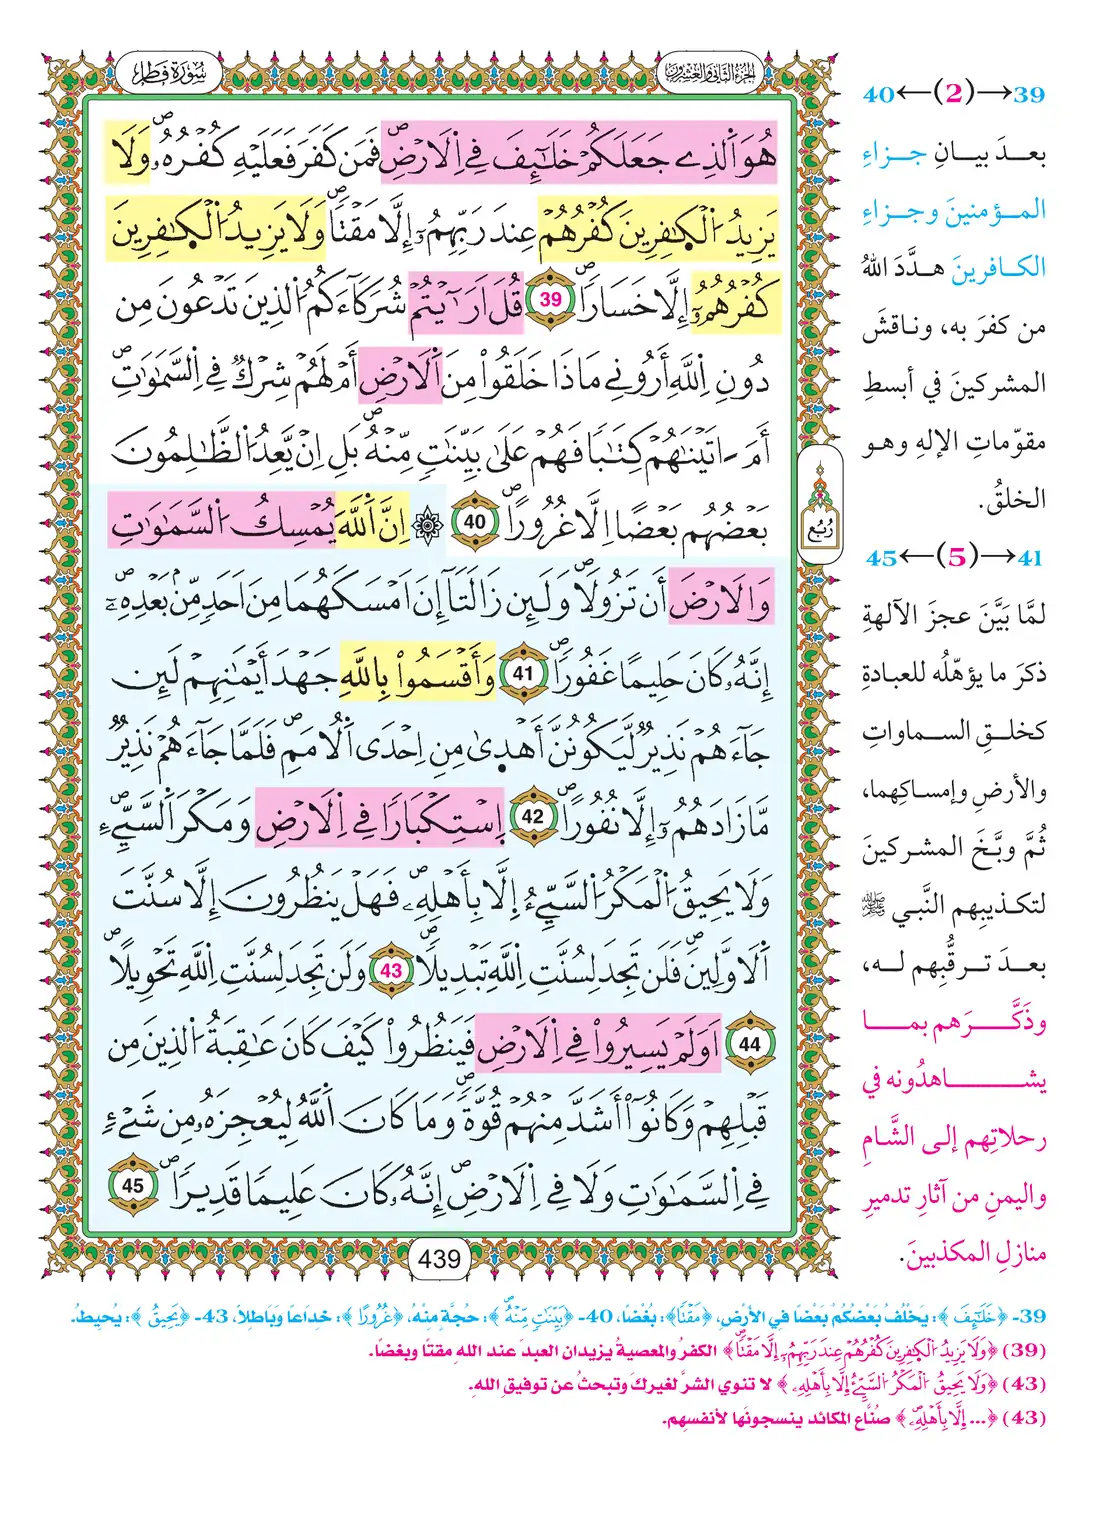 الجزء الثاني والعشرون
سورة فاطر
هُوَ اَ۬لذِے جَعَلَكُمْ خَلَٰٓئِفَ فِے اِ۬لَارْضِۖ فَمَن كَفَرَ فَعَلَيْهِ كُفْرُهُۥۖ وَلَا
يَزِيدُ اُ۬لْكٰ۪فِرِينَ كُفْرُهُمْ عِندَ رَبِّهِمُۥٓ إِلَّا مَقْتاٗۖ وَلَا يَزِيدُ اُ۬لْكٰ۪فِرِينَ
كُفْرُهُمُۥٓ إِلَّا خَسَاراٗۖ 39 قُلَ اَرَٰٓيْتُمْ شُرَكَآءَكُمُ اُ۬لذِينَ تَدْعُونَ مِن
دُونِ اِ۬للَّهِ أَرُونِے مَاذَا خَلَقُواْ مِنَ اَ۬لَارْضِ أَمْ لَهُمْ شِرْكٞ فِے اِ۬لسَّمَٰوَٰتِۖ
أَمَ اٰتَيْنَٰهُمْ كِتَٰباٗ فَهُمْ عَلَىٰ بَيِّنَٰتٖ مِّنْهُۖ بَلِ اِنْ يَّعِدُ اُ۬لظَّٰلِمُونَ
بَعْضُهُم بَعْضاً اِلَّا غُرُوراٗۖ 40 ۞ اِنَّ اَ۬للَّهَ يُمْسِكُ اُ۬لسَّمَٰوَٰتِ
وَالَارْضَ أَن تَزُولَاۖ وَلَئِن زَالَتَآ إِنَ اَمْسَكَهُمَا مِنَ اَحَدٖ مِّنۢ بَعْدِهِۦٓۖ
إِنَّهُۥ كَانَ حَلِيماً غَفُوراٗۖ 41 وَأَقْسَمُواْ بِاللَّهِ جَهْدَ أَيْمَٰنِهِمْ لَئِن
جَآءَهُمْ نَذِيرٞ لَّيَكُونُنَّ أَهْدَىٰ مِنِ اِحْدَى اَ۬لُامَمِۖ فَلَمَّا جَآءَهُمْ نَذِيرٞ
مَّا زَادَهُمُۥٓ إِلَّا نُفُوراًۖ 42 اِ۪سْتِكْبَاراٗ فِے اِ۬لَارْضِ وَمَكْرَ اَ۬لسَّيِّےِٕۖ
وَلَا يَحِيقُ اُ۬لْمَكْرُ اُ۬لسَّيِّئُ إِلَّا بِأَهْلِهِۦۖ فَهَلْ يَنظُرُونَ إِلَّا سُنَّتَ
اَ۬لَاوَّلِينَۖ فَلَن تَجِدَ لِسُنَّتِ اِ۬للَّهِ تَبْدِيلاٗۖ 43 وَلَن تَجِدَ لِسُنَّتِ اِ۬للَّهِ تَحْوِيلاًۖ
44 اَوَلَمْ يَسِيرُواْ فِے اِ۬لَارْضِ فَيَنظُرُواْ كَيْفَ كَانَ عَٰقِبَةُ اُ۬لذِينَ مِن
قَبْلِهِمْ وَكَانُوٓاْ أَشَدَّ مِنْهُمْ قُوَّةٗۖ وَمَا كَانَ اَ۬للَّهُ لِيُعْجِزَهُۥ مِن شَےْءٖ
فِے اِ۬لسَّمَٰوَٰتِ وَلَا فِے اِ۬لَارْضِۖ إِنَّهُۥ كَانَ عَلِيماٗ قَدِيراٗۖ 45
رُبُع
439
39→(2)←40
بعـدَ بيـانِ جـزاءِ
المـؤمنينَ وجـزاءِ
الكـافرينَ هـدَّدَ اللهُ
من كفرَ به، وناقشَ
المشركينَ في أبسطِ
مقوّماتِ الإلهِ وهـو
الخلقُ.
41→(5)←45
لمَّا بَيَّنَ عجزَ الآلهةِ
ذكرَ ما يؤهّلُه للعبادةِ
كخلـقِ السـماواتِ
والأرضِ وإمساكِهما،
ثُمَّ وبَّخَ المشركينَ
لتكذيبِهم النَّبي ﷺ
بعدَ ترقُّبِهم لـه،
وذَكَّـرَهم بمـا
يشـاهدُونه في
رحلاتِهم إلى الشَّامِ
واليمنِ من آثارِ تدميرِ
منازلِ المكذبينَ.
39- ﴿خَلَٰٓئِفَ﴾: يَخْلُفُ بَعْضُكُمْ بَعْضًا في الأَرْضِ، ﴿مَقْتاٗ﴾: بُغْضًا، 40- ﴿بَيِّنَٰتٖ مِّنْهُۖ﴾: حُجَّةٍ مِنْهُ، ﴿غُرُوراٗ﴾: خِدَاعًا وَبَاطِلاً، 43- ﴿يَحِيقُ﴾: يُحِيطُ.
(39) ﴿وَلَا يَزِيدُ اُ۬لْكٰ۪فِرِينَ كُفْرُهُمْ عِندَ رَبِّهِمُۥٓ إِلَّا مَقْتاٗۖ﴾ الكفرُ والمعصيةُ يزيدان العبدَ عند اللهِ مقتًا وبغضًا.
(43) ﴿وَلَا يَحِيقُ اُ۬لْمَكْرُ اُ۬لسَّيِّئُ إِلَّا بِأَهْلِهِۦ﴾ لا تنوي الشرَّ لغيركَ وتبحثُ عن توفيقِ اللهِ.
(43) ﴿... إِلَّا بِأَهْلِهِۦۖ﴾ صُنَّاع المكائد ينسجونَها لأنفسِهم.